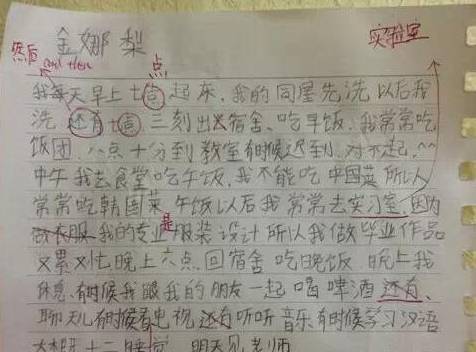 金娜梨
实验室
然后 and then
点
我每天早上七 起来,我的同屋先洗以后我
洗 还有七 三刻出去宿舍、吃早饭,我常常吃
饭团.八点十分到教室有时候迟到.对不起,^^
中午我去食堂吃午饭,我不能吃中国菜 所以
常常吃韩国菜 午饭以后我常常去实习室,因为
做衣服 我的专业是服装设计 所以我做毕业作品
又累又忙晚上六点回宿舍吃晚饭 晚上我
休息、有时候我跟我的朋友一起喝啤酒 还有、
聊天儿有时候看电视 还有听听音乐有时候学习汉语
十二 睡觉 明天见老师